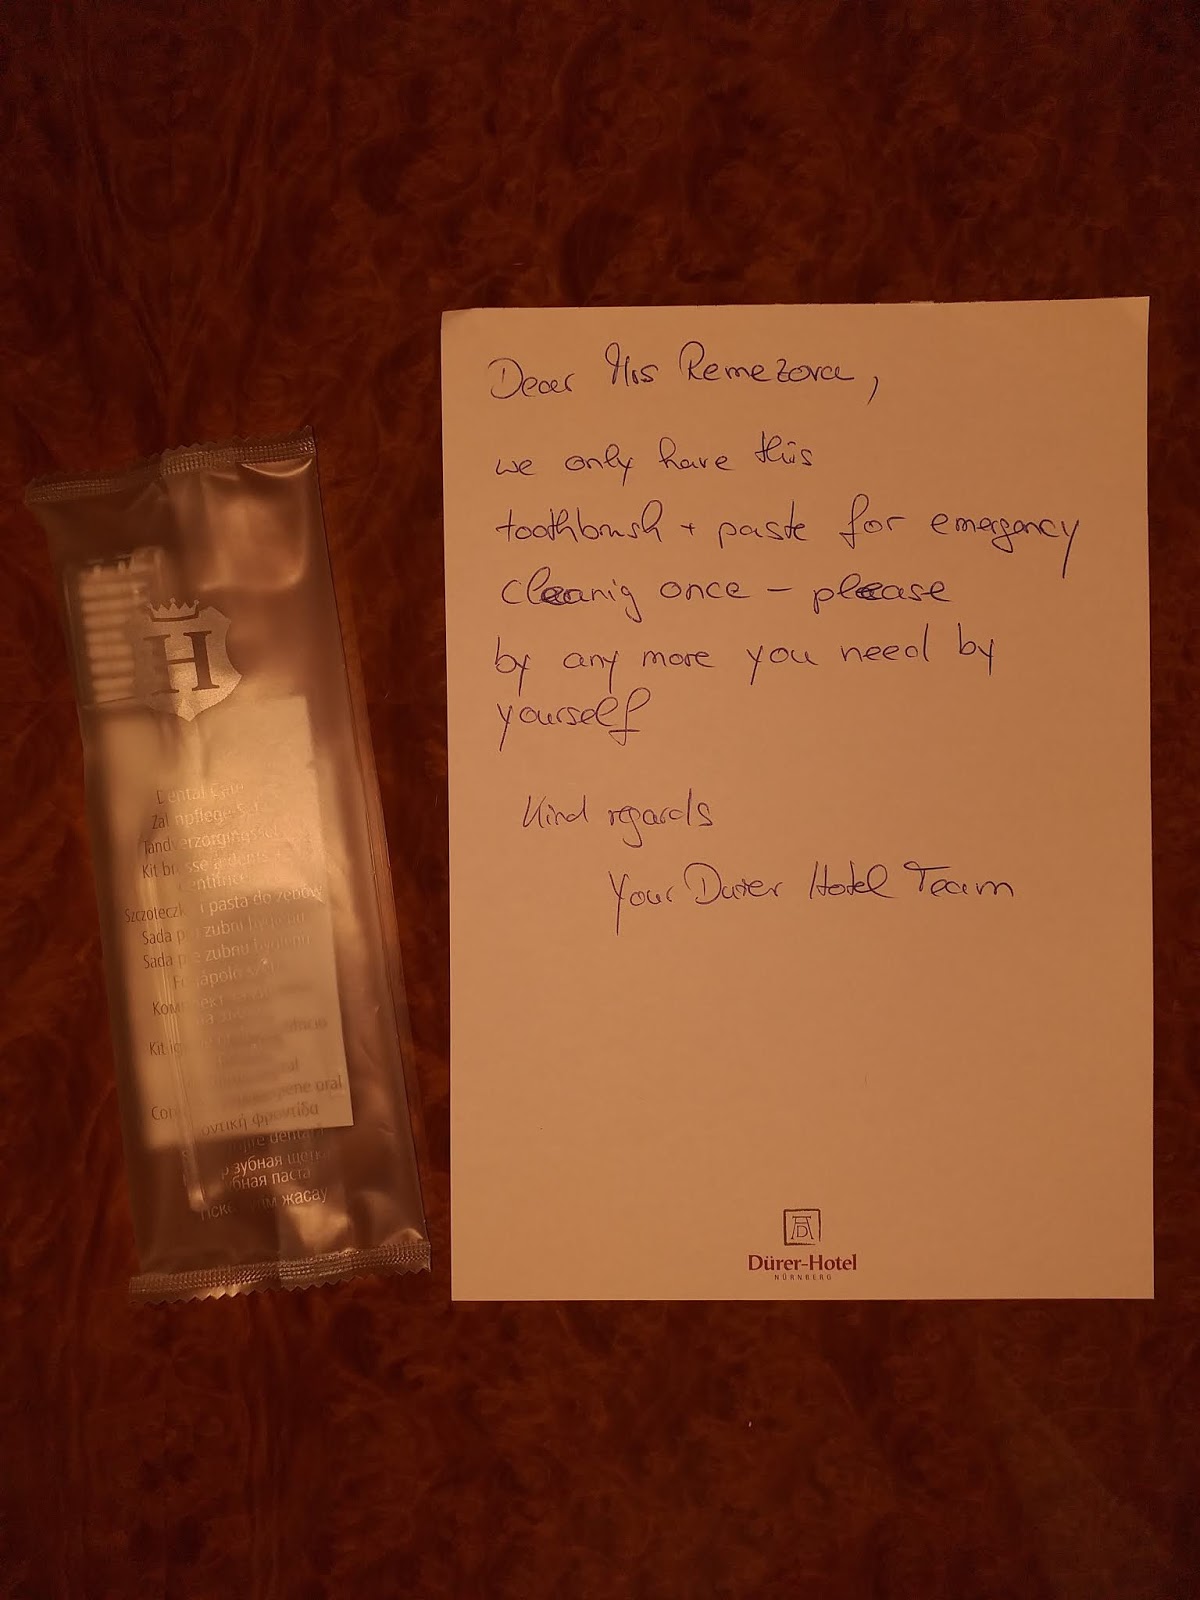 H
Dental Care
Zahnpflege-Set
Tandverzorgingsset
Kit brosse à dents +
dentifrice
Szczoteczka i pasta do zębów
Sada pro zubní hygienu
Sada pre zubnú hygienu
Fogápoló szett
Kit
oral
οντική φροντίδα
зубная щетка
зубная паста
жасау
Dear Mrs Remezova,
we only have this
toothbrush + paste for emergency
cleanig once - please
by any more you need by
yourself
Kind regards
Your Dürer Hotel Team
AD
Dürer-Hotel
NÜRNBERG